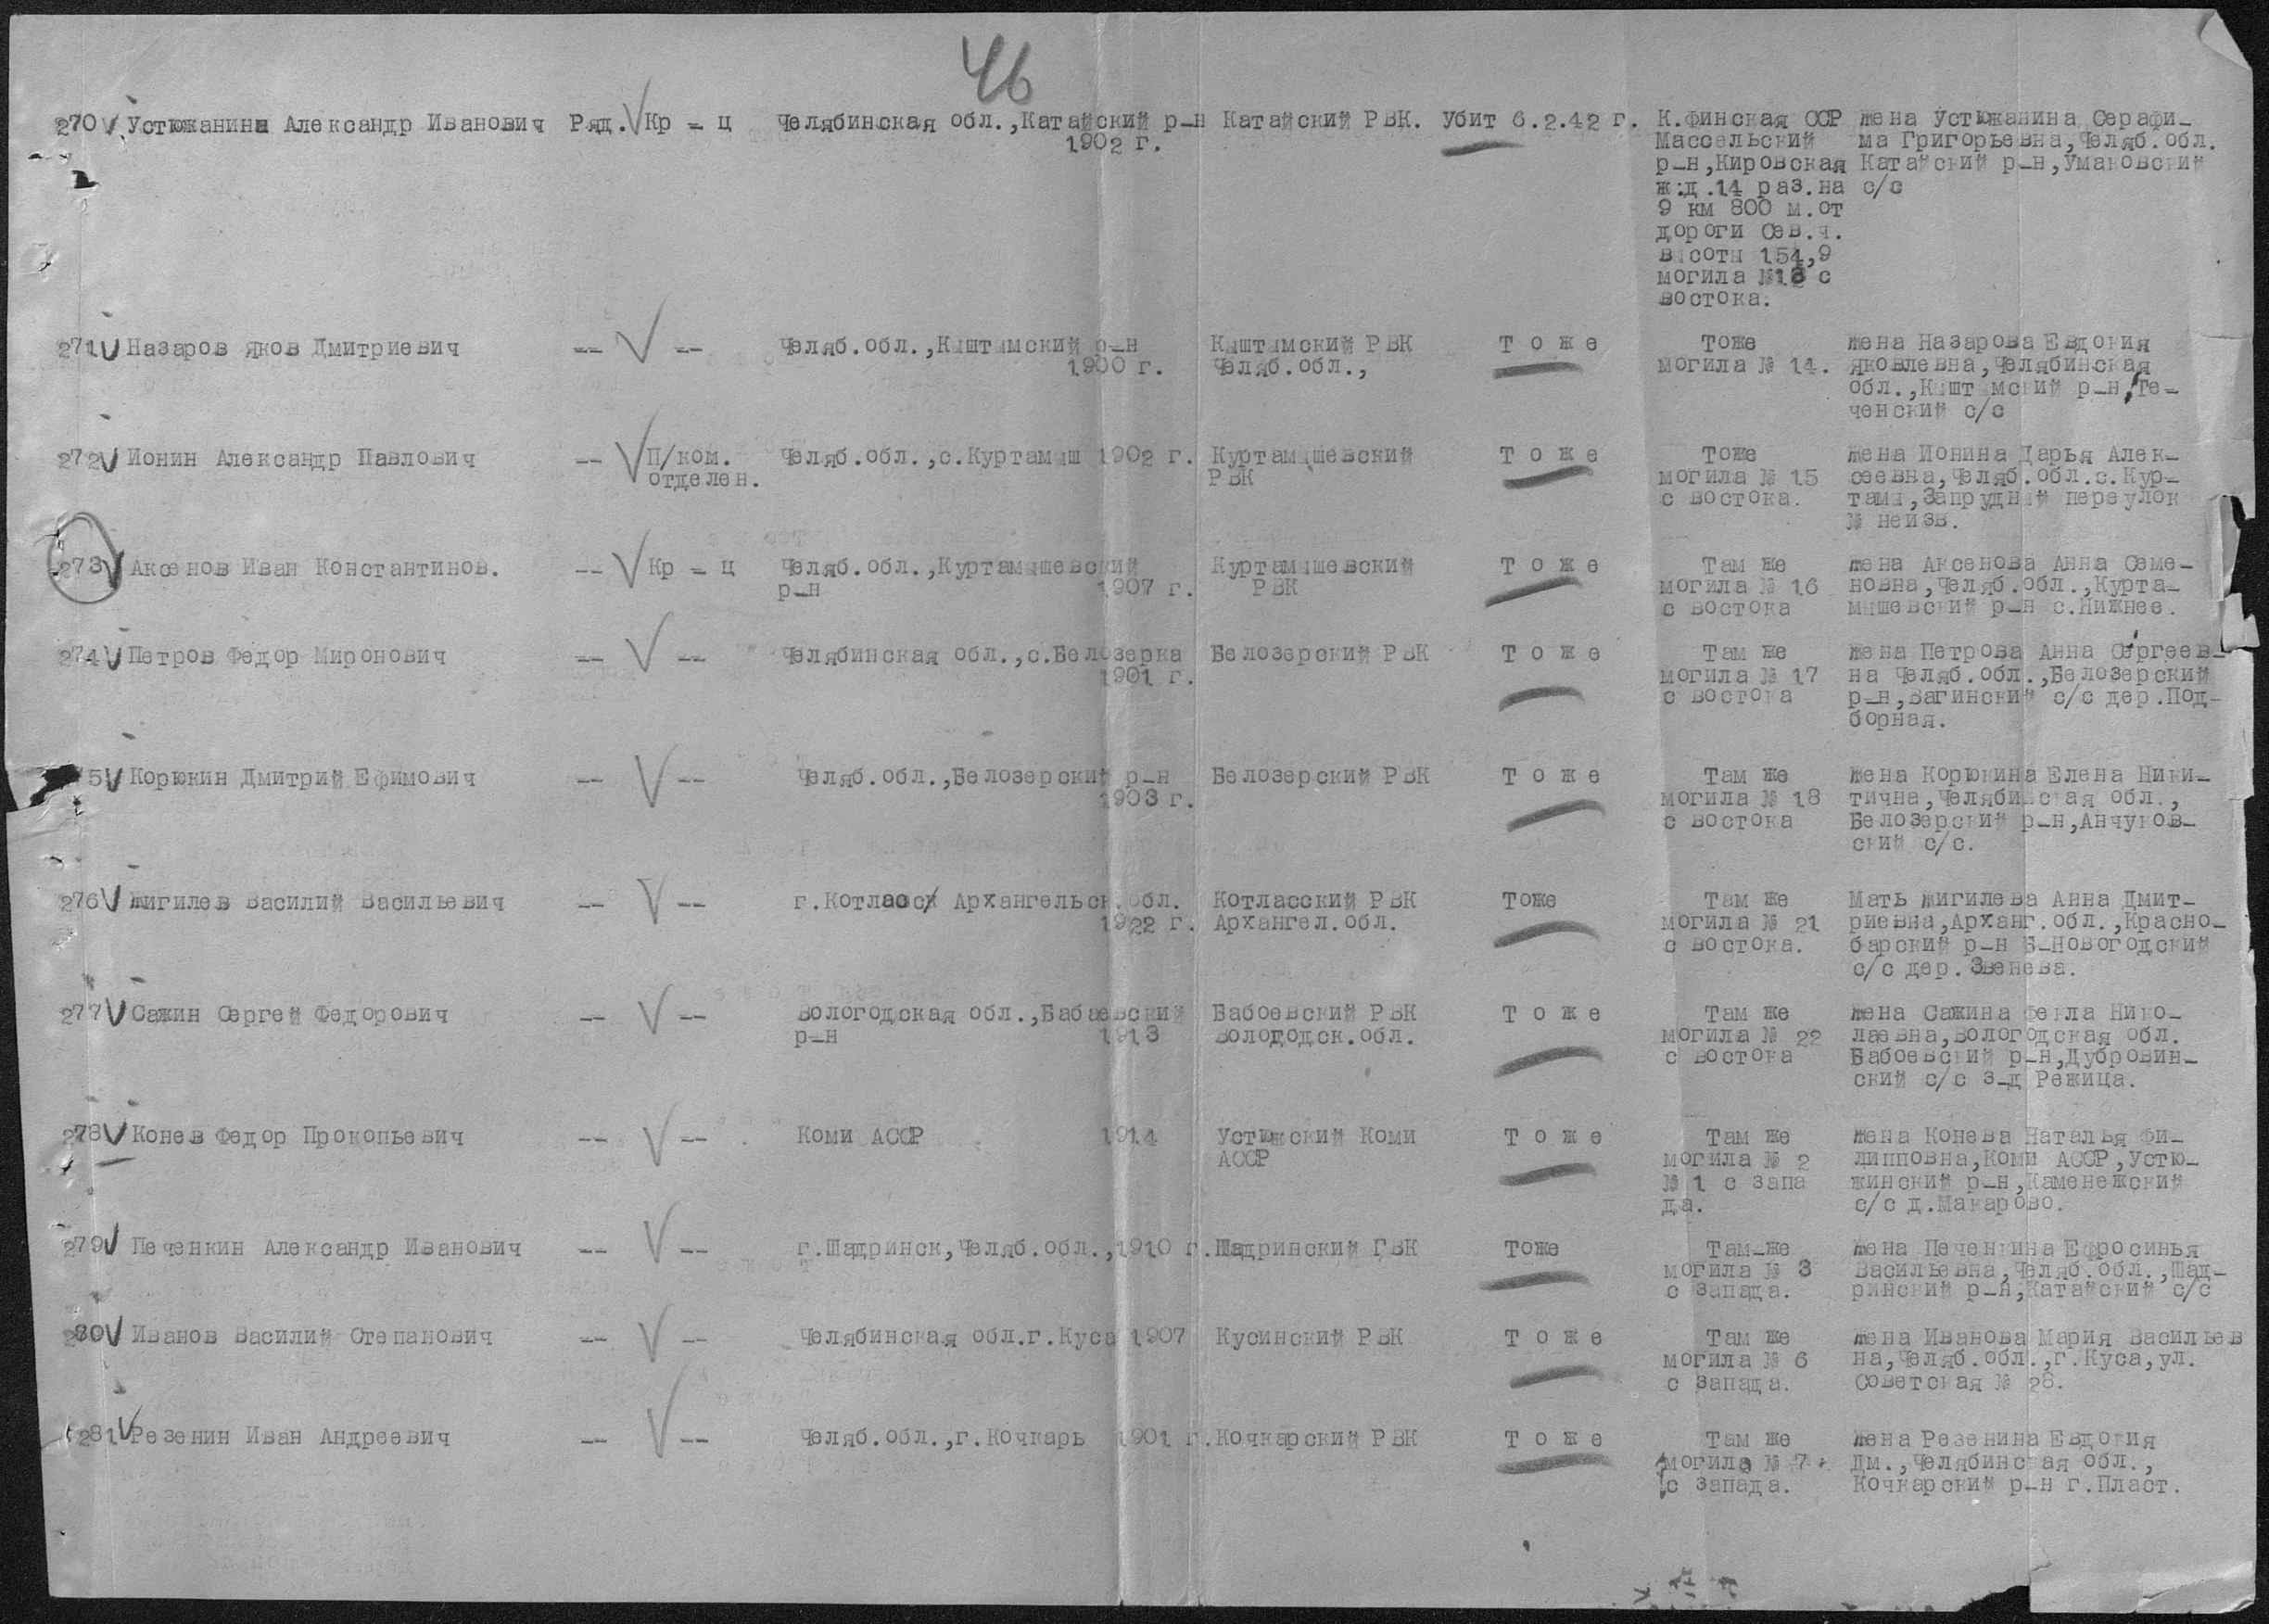 46
270 Устюжанина Александр Иванович Ряд. Кр - ц Челябинская обл.,Катайский р-н Катайский РВК. Убит 6.2.42 г. К.Финская ССР жена Устюжанина Серафи-
1902 г. Массельский ма Григорьевна,Челяб.обл.
р-н,Кировская Катайский р-н,Умаковский
ж.д.14 раз.на с/с
9 км 800 м.от
дороги Сев.ч.
высоты 154,9
могила №13 с
востока.
271 Назаров Яков Дмитриевич -- -- Челяб.обл.,Кыштымский р-н Кыштымский РВК Т о ж е Тоже жена Назарова Евдокия
1900 г. Челяб.обл., могила № 14. Яковлевна,Челябинская
обл.,Кыштымский р-н,Те-
ченский с/с
272 Ионин Александр Павлович -- П/ком. Челяб.обл.,с.Куртамыш 1902 г. Куртамышевский Т о ж е Тоже жена Ионина Дарья Алек-
отделен. РВК могила № 15 сеевна,Челяб.обл.с.Кур-
с востока. тамы,Запрудный переулок
№ неизв.
273 Аксенов Иван Константинов. -- Кр - ц Челяб.обл.,Куртамышевский Куртамышевский Т о ж е Там же жена Аксенова Анна Семе-
р-н 1907 г. РВК могила № 16 новна,Челяб.обл.,Курта-
с востока мышевский р-н с.Нижнее.
274 Петров Федор Миронович -- -- Челябинская обл.,с.Белозерка Белозерский РВК Т о ж е Там же жена Петрова Анна Сергеев-
1901 г. могила № 17 на Челяб.обл.,Белозерский
с востока р-н,Вагинский с/с дер.Под-
борная.
5 Корюкин Дмитрий Ефимович -- -- Челяб.обл.,Белозерский р-н Белозерский РВК Т о ж е Там же жена Корюкина Елена Ники-
1903 г. могила № 18 тична,Челябинская обл.,
с востока Белозерский р-н,Анчуков-
ский с/с.
276 Жигилев Василий Васильевич -- -- г.Котласс Архангельск.обл. Котласский РВК Тоже Там же Мать Жигилева Анна Дмит-
1922 г. Архангел.обл. могила № 21 риевна,Арханг.обл.,Красно-
с востока. барский р-н Б-Новогодский
с/с дер.Звенева.
277 Сажин Сергей Федорович -- -- Вологодская обл.,Бабаевский Бабоевский РВК Т о ж е Там же жена Сажина Фекла Нико-
р-н 1913 Вологодск.обл. могила № 22 лаевна,Вологодская обл.
с востока Бабоевский р-н,Дубровин-
ский с/с з-д Режица.
278 Конев Федор Прокопьевич -- -- Коми АССР 1914 Устюжский Коми Т о ж е Там же жена Конева Наталья Фи-
АССР могила № 2 липповна,Коми АССР,Устю-
№ 1 с запа жинский р-н,Каменежский
да. с/с д.Макарово.
279 Печенкин Александр Иванович -- -- г.Шадринск,Челяб.обл.,1910 г. Шадринский ГВК Тоже Там-же жена Печенкина Ефросинья
могила № 3 Васильевна,Челяб.обл.,Шад-
с запада. ринский р-н,Катайский с/с
280 Иванов Василий Степанович -- -- Челябинская обл.г.Куса 1907 Кусинский РВК Т о ж е Там же жена Иванова Мария Васильев
могила № 6 на,Челяб.обл.,г.Куса,ул.
с запада. Советская № 28.
281 Резенин Иван Андреевич -- -- Челяб.обл.,г.Кочкарь 1901 г. Кочкарский РВК Т о ж е Там же жена Резенина Евдокия
могила № 7. Дм.,Челябинская обл.,
с запада. Кочкарский р-н г.Пласт.